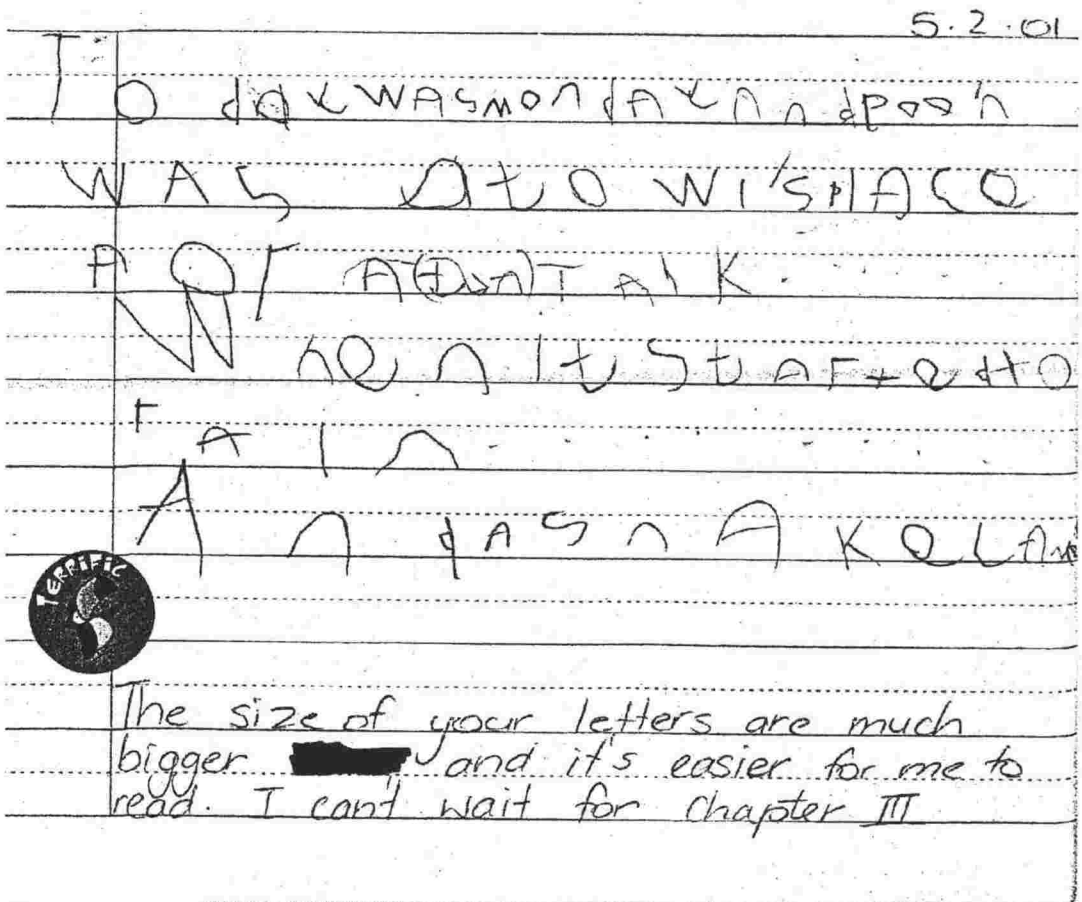 5.2.01
To day WAS mondAy And Poo'h
WAS At OWl'S PlACe
for A (Fun) TAlk.
When It StArted to
rAIn.
And A SnAKe CAme
TERRIFIC
The size of your letters are much
bigger and it's easier for me to
read. I can't wait for Chapter III